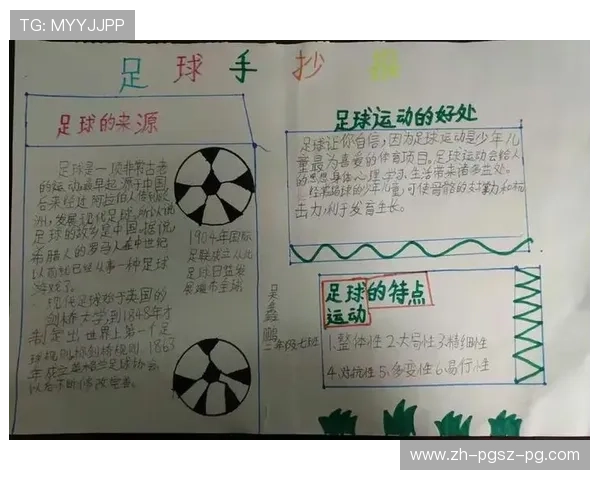 TG: MYYJJPP
足球手抄报
足球的来源
足球是一项非常古老
的运动,最早起源于中国,
后来经过阿拉伯人传到欧
洲,发展现代足球。所以说
足球的故乡是中国。据说,
希腊人的罗马人在中世纪
以前就已经从事一种足球
游戏了。
现代足球始于英国的
剑桥大学,到1848年才
制定出世界上第一个足
球规则称剑桥规则,1863
年成立英格兰足球协会,
以后不断修改完善。
1904年国际
足联成立从此
足球日益发
展遍布全球
吴鑫鹏
二年级七班
足球运动的好处
足球让你自信,因为足球运动是少年儿
童最为喜爱的体育项目。足球运动会给人
的思想身体心理学习、生活带来诸多益处。
经常踢球的少年儿童,可使骨骼的
击力,利于发育生长。
足球的特点
运动
1.整体性 2.大局性 3.精细性
4.对抗性 5.多变性 6.易行性
www.zh-pgsz-pg.com